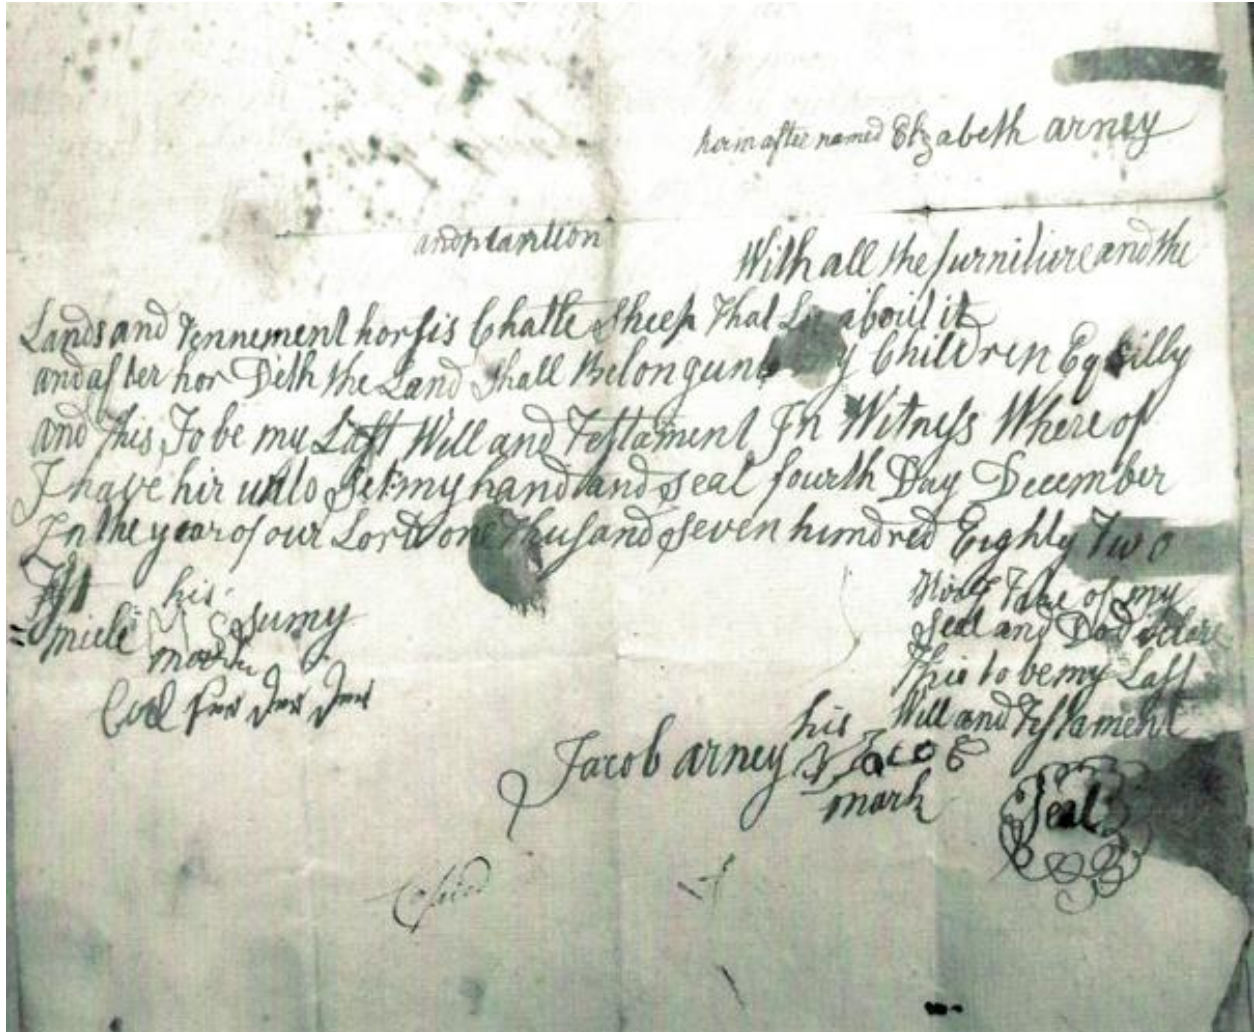 herin after named Elizabeth arney
and plantion
With all the furniture and the
Lands and Tennement horsis Chatle Sheep That about it
and after hor Deth the Land Shall Belong unto my Children Equally
and This To be my Last Will and Testament In Witness Where of
I have hir unto Set my hand and Seal fourth Day December
In the year of our Lord one thusand Seven hundred Eighty Two
his
mark
of my
Seal and Do declare
This to be my Last
Will and Testament
Jacob arney his
mark
Seal